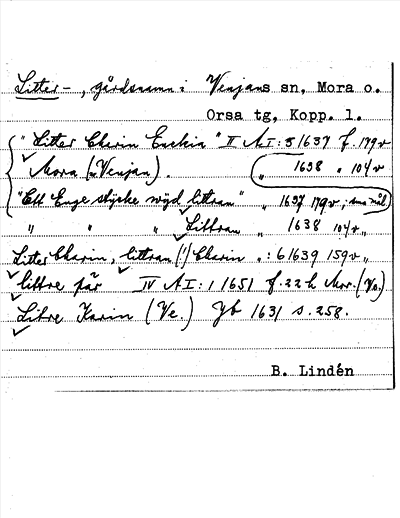 Litter-, gårdsnamn i Venjans sn, Mora o.
Orsa tg, Kopp. l.
"Litter Charin Enckia" II A I:5 1637 f. 179v
Mora (Venjan). " 1638 " 104v
"Ett Enge stycke nögd littran" " 1637 179v; sma mål)
" " " Littran " 1638 104v,,
Liter Charin, littran (!) Charin ,: 6 1639 159v,,
littre pär IV A I:1 1651 f. 22 h Mor. (Ve.)
Litre Karin (Ve.) Jb 1631 s. 258.
B. Lindén